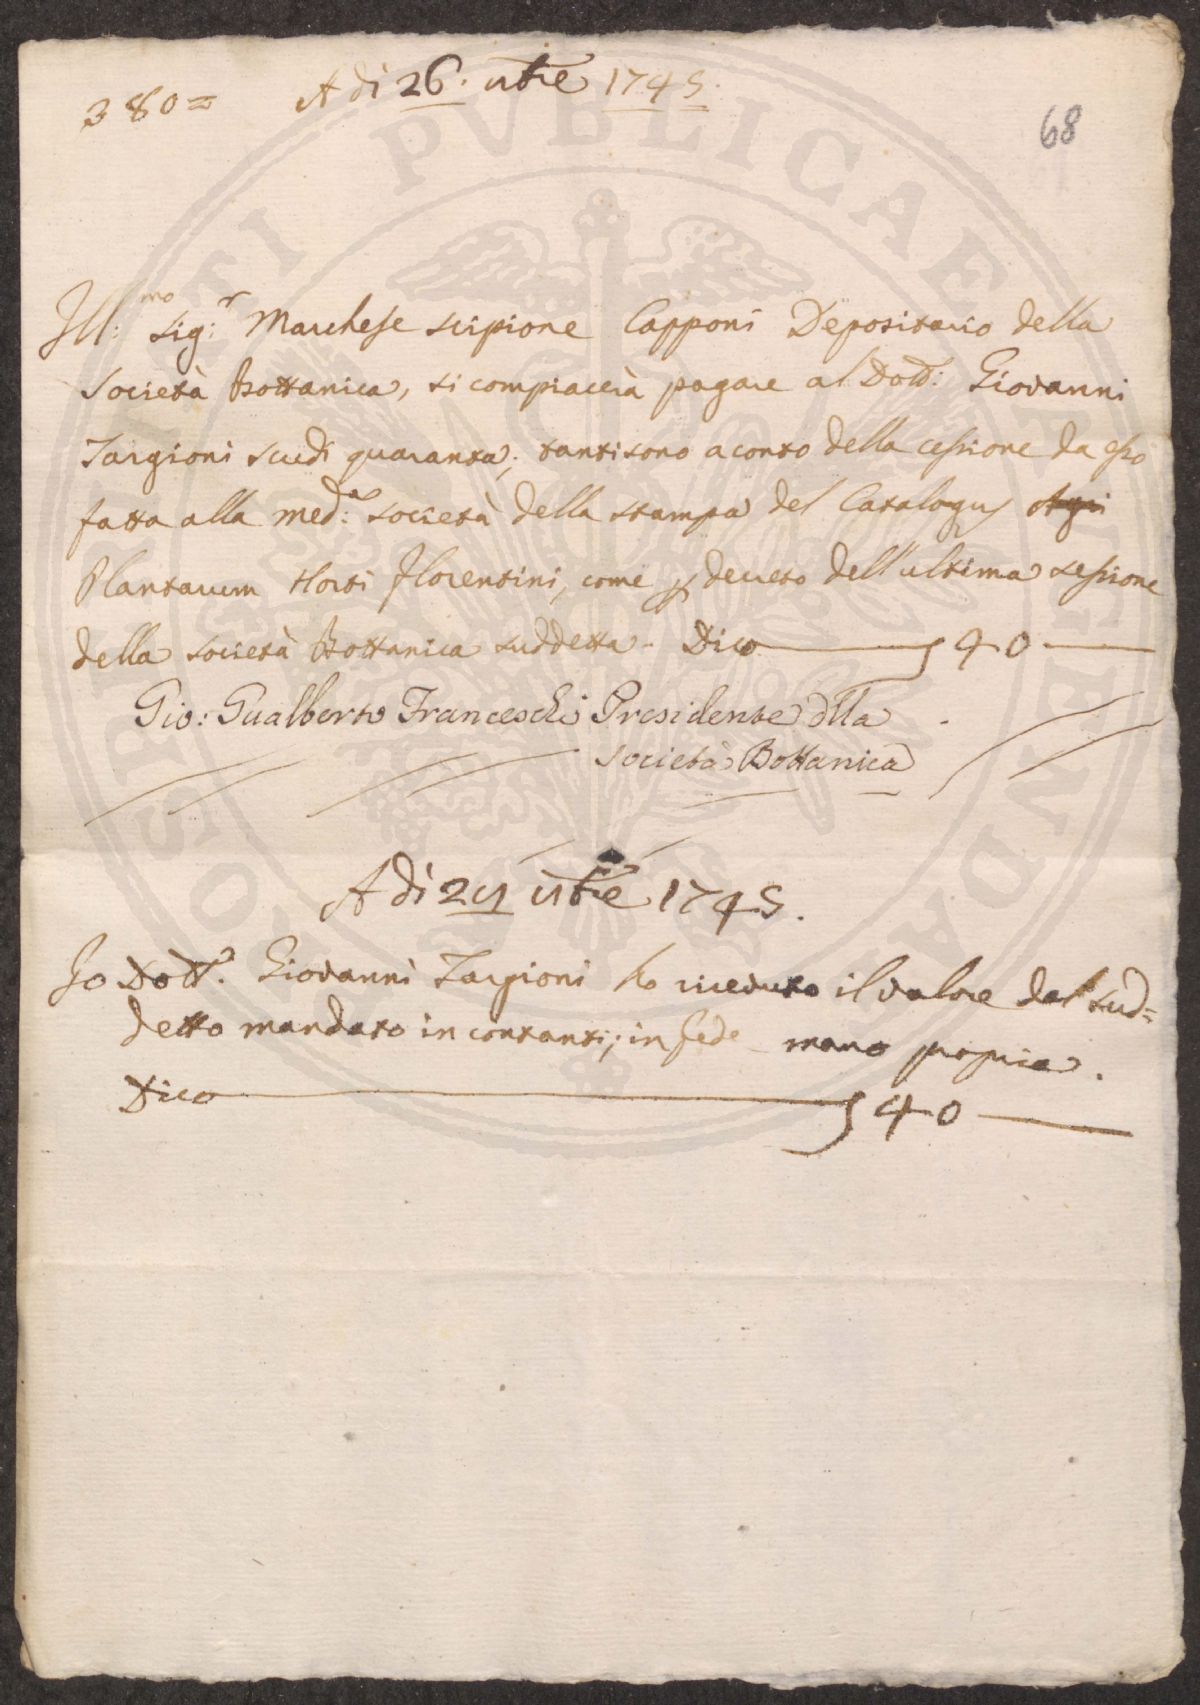 380= A di 26. xbre 1745.
68
Ill:mo Sig:r Marchese Scipione Capponi Depositario della
Società Bottanica, si compiacerà pagare al Dott: Giovanni
Targioni scudi quaranta; tanti sono a conto della cessione da esso
fatta alla med:a Società della stampa del Catalogus
Plantarum Horti Florentini, come p decreto dell'ultima sessione
della Società Bottanica suddetta. Dico 40
Gio: Gualberto Franceschi Presidente dlla
Società Bottanica
A di xbre 1745.
Io Dott. Giovanni Targioni ho riceduto il valore del sud=
detto mandato in contanti; in fede mano propria.
Dico 40
SOSPITATI PVBLICAE AVGENDAE